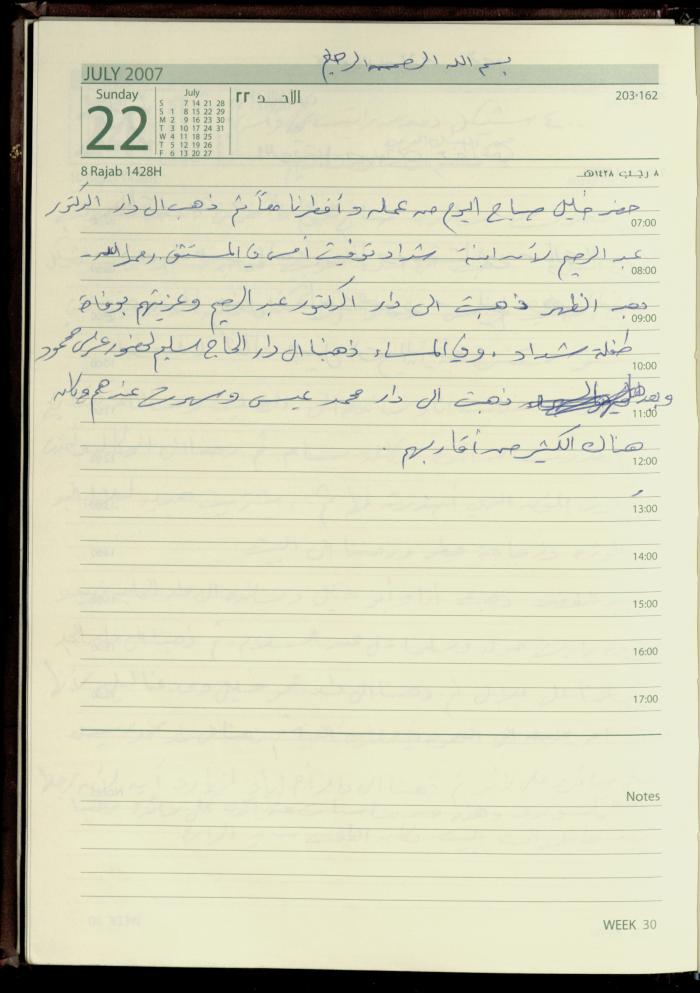 بسم الله الرحمن الرحيم
JULY 2007
Sunday
22
July
S 7 14 21 28
S 1 8 15 22 29
M 2 9 16 23 30
T 3 10 17 24 31
W 4 11 18 25
T 5 12 19 26
F 6 13 20 27
الأحد ٢٢
203-162
8 Rajab 1428H
٨ رجب ١٤٢٨هـ
حضر خليل صباح اليوم من عمله وأفطرنا معاً ثم ذهب الى دار الدكتور
07:00
عبد الرحيم لأن ابنة شداد توفيت أمس في المستشفى رحمها الله -
08:00
بعد الظهر ذهبت الى دار الدكتور عبد الرحيم وعزيتهم بوفاة
09:00
طفلة شداد ، وفي المساء ذهبنا الى دار الحاج سليم لحضور عرس محمود
10:00
وبعدها ذهبت الى دار محمد عيسى وسهرت عندهم وكان
11:00
هناك الكثير من أقاربهم .
12:00
13:00
14:00
15:00
16:00
17:00
Notes
WEEK 30